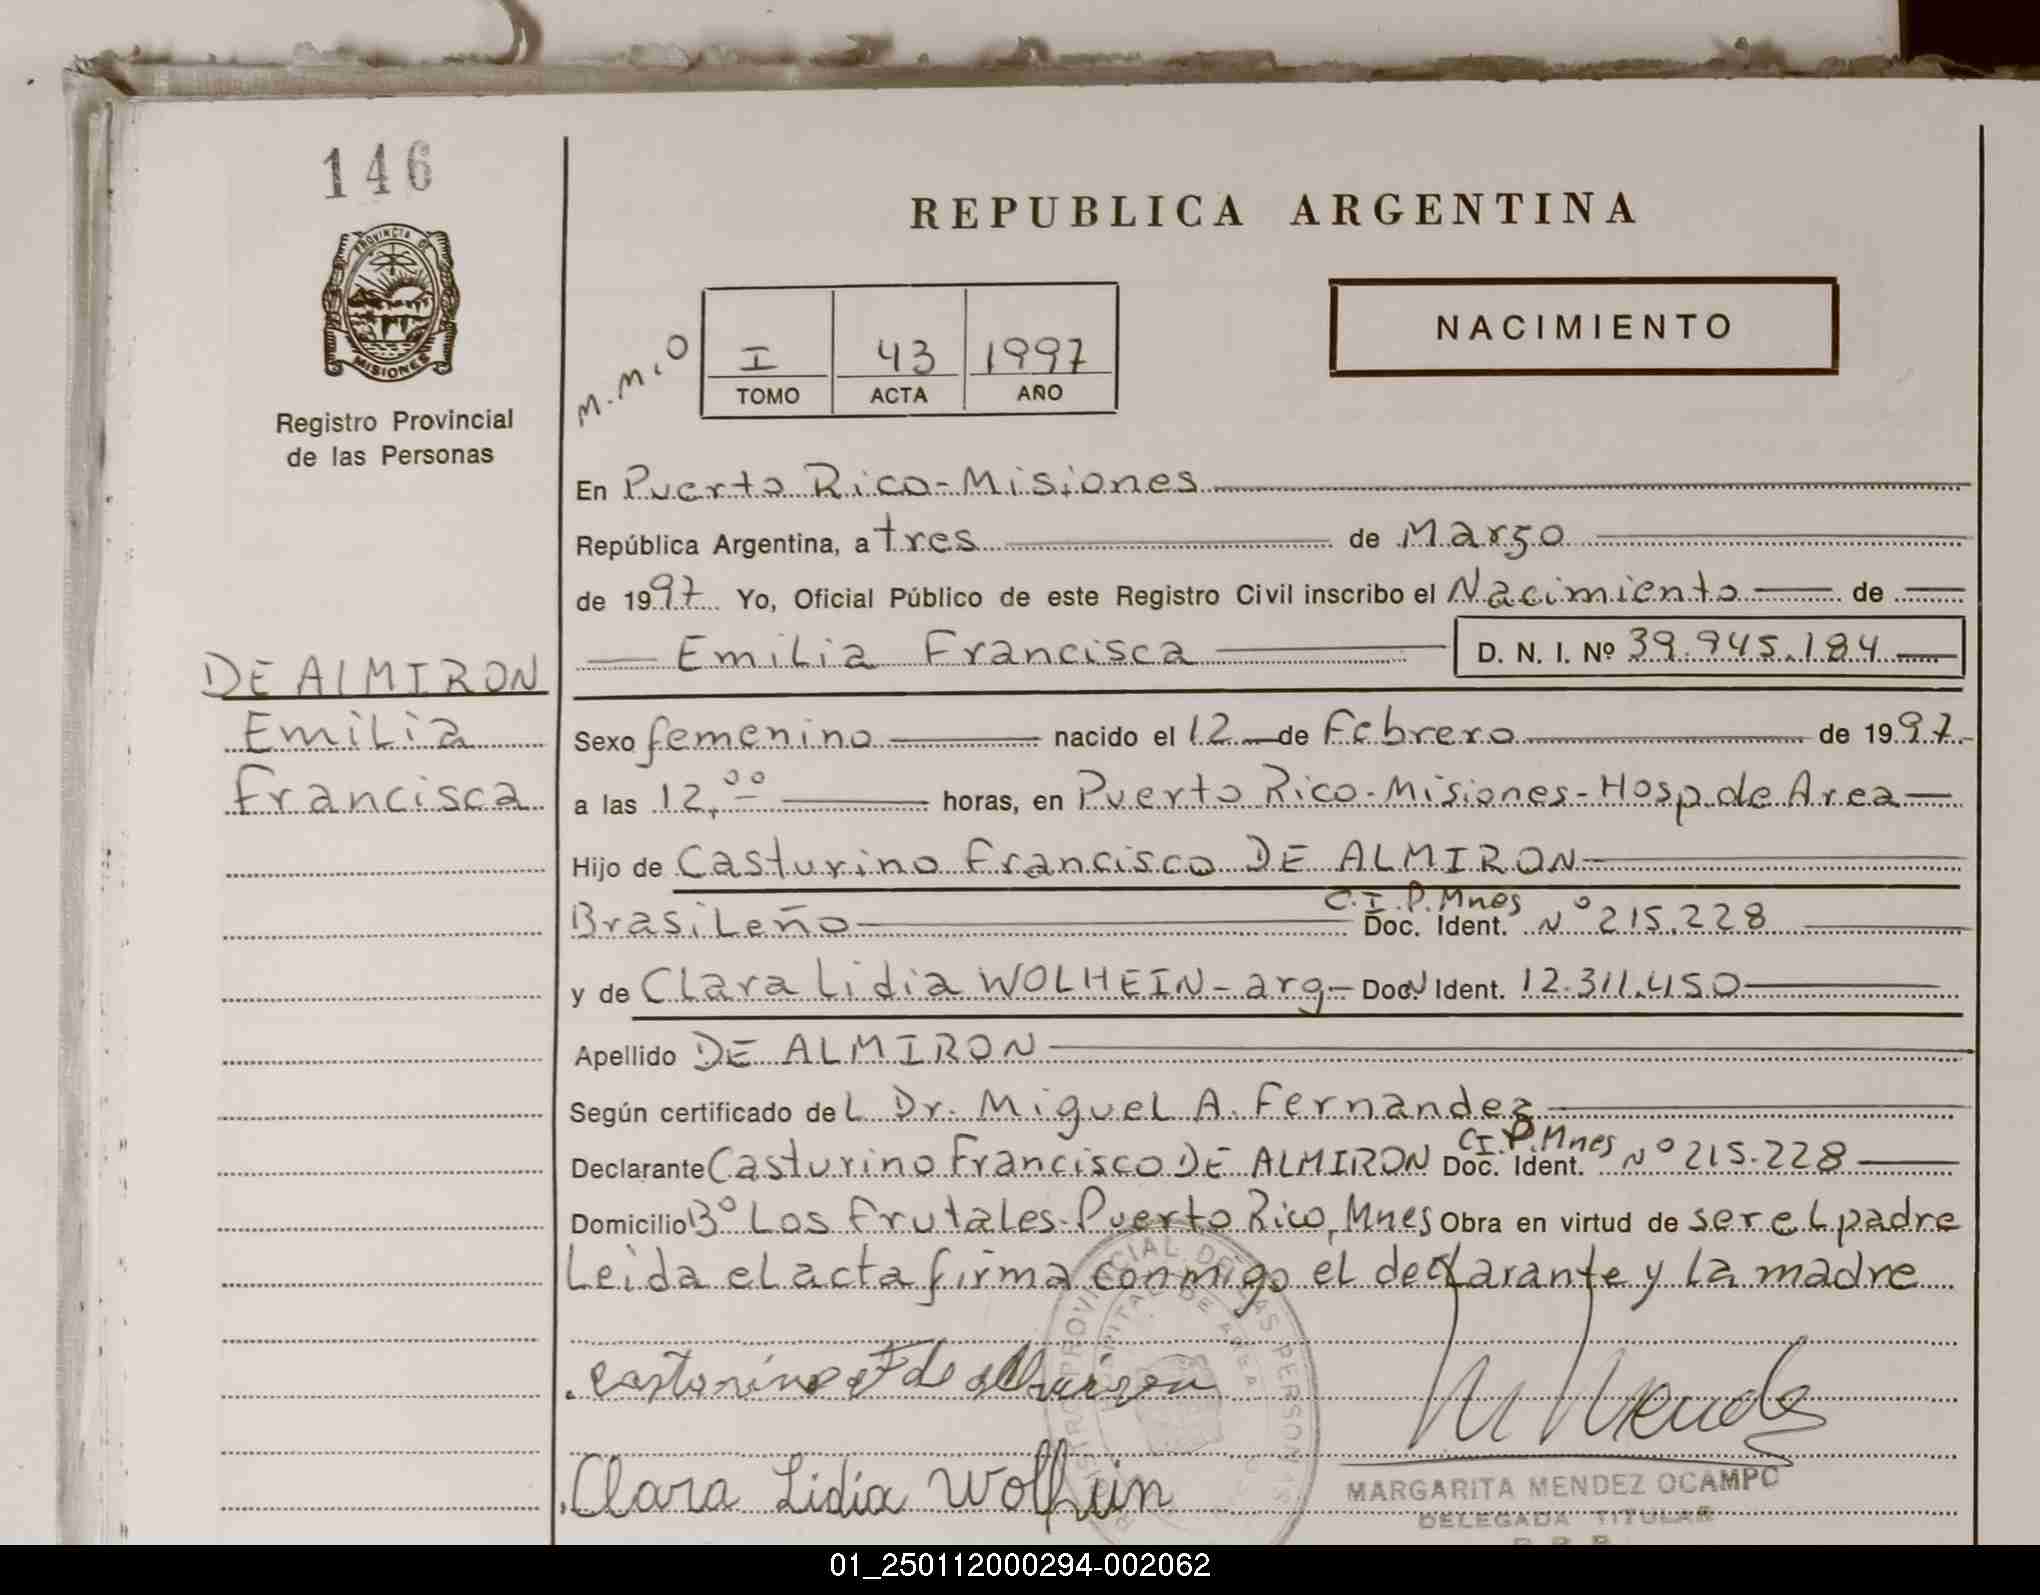 146
PROVINCIA DE
MISIONES
Registro Provincial
de las Personas
REPUBLICA ARGENTINA
NACIMIENTO
M.M.O
I 43 1997
TOMO ACTA AÑO
En Puerto Rico-Misiones
República Argentina, a tres de Marzo
de 1997 Yo, Oficial Público de este Registro Civil inscribo el Nacimiento de
Emilia Francisca D. N. I. Nº 39.945.184
DE ALMIRON
Emilia
Francisca
Sexo femenino nacido el 12 de Febrero de 1997
a las 12,00 horas, en Puerto Rico-Misiones-Hosp.de Area
Hijo de Casturino Francisco DE ALMIRON
Brasileño C.I.P.Mnes Doc. Ident. Nº 215.228
y de Clara Lidia WOLHEIN-arg- Doc. Ident. 12.311.450
Apellido DE ALMIRON
Según certificado del Dr. Miguel A. Fernandez
Declarante Casturino Francisco DE ALMIRON C.I.P.Mnes Doc. Ident. Nº 215.228
Domicilio Bº Los Frutales-Puerto Rico, Mnes Obra en virtud de ser el padre
Leida el acta firma conmigo el declarante y la madre
Clara Lidia Wolhein
MARGARITA MENDEZ OCAMPO
DELEGADA TITULAR
01_250112000294-002062